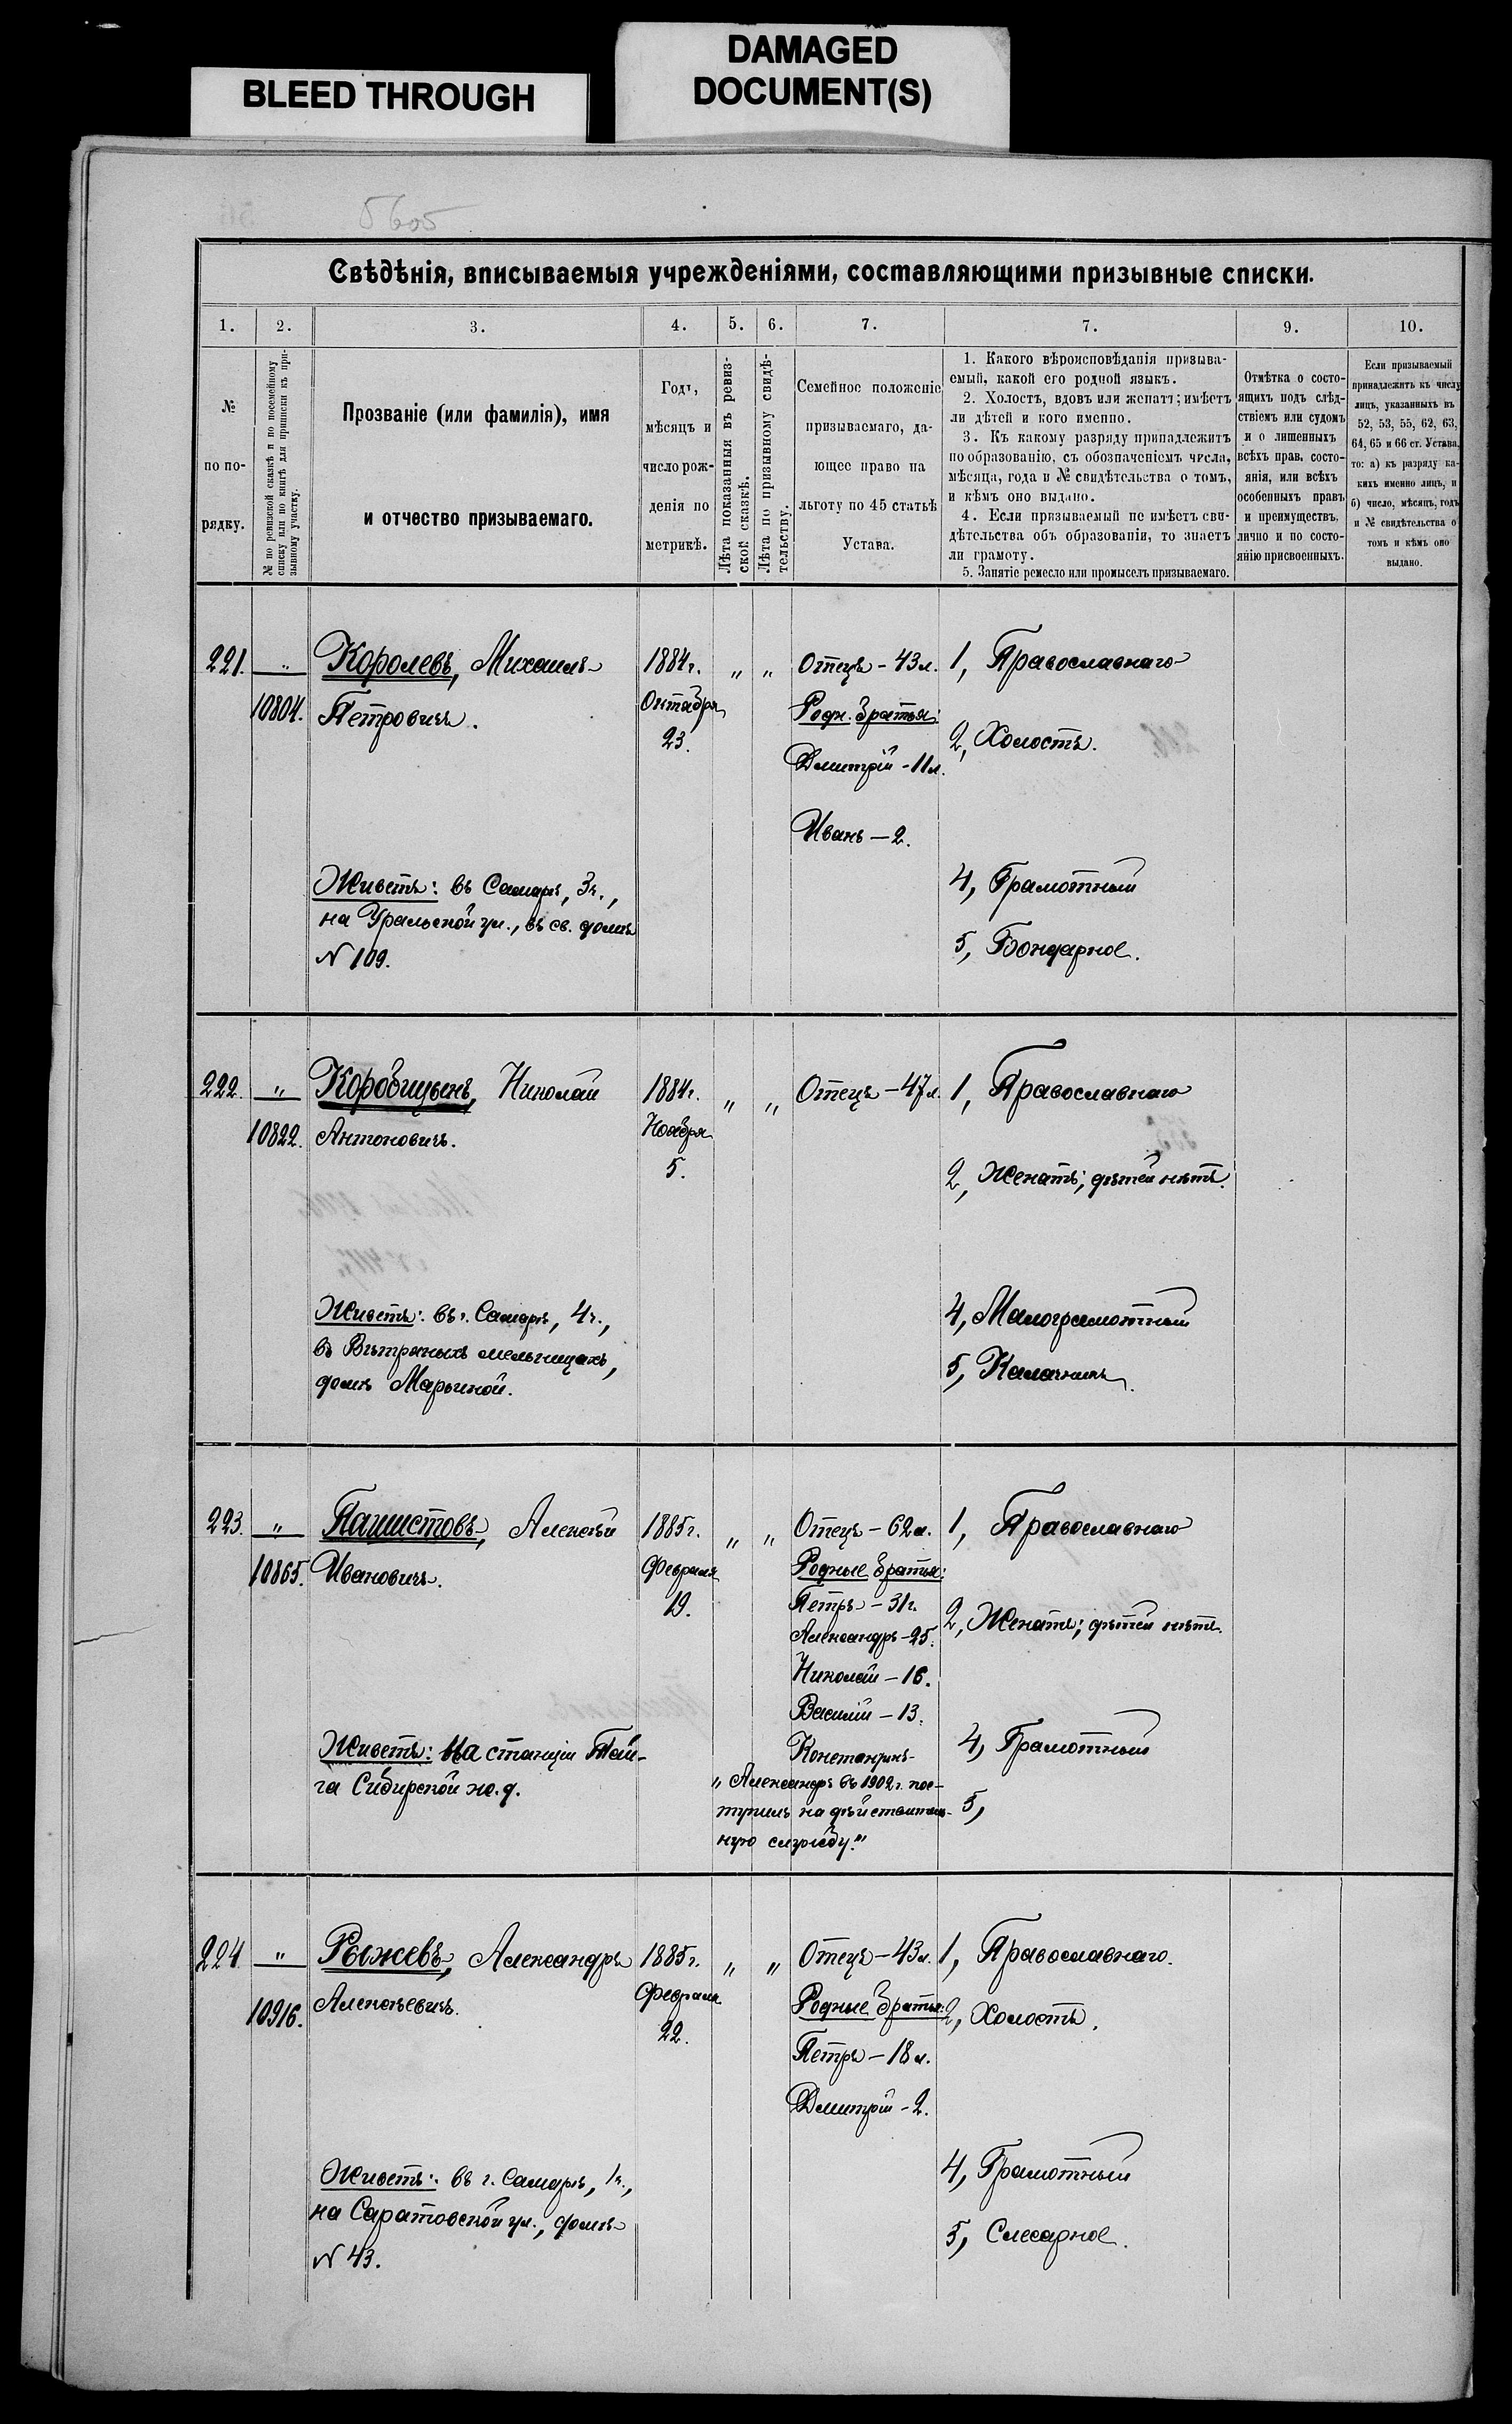 BLEED THROUGH
DAMAGED
DOCUMENT(S)
5605
Свѣдѣнія, вписываемыя учрежденіями, составляющими призывные списки.
1. 2. 3. 4. 5. 6. 7. 7. 9. 10.
№
по по-
рядку.
№ по ревизской сказкѣ и по посемейному
списку или по книгѣ для приписки къ при-
зывному участку.
Прозваніе (или фамилія), имя
и отчество призываемаго.
Годъ,
мѣсяцъ и
число рож-
денія по
метрикѣ.
Лѣта показанныя въ ревиз-
ской сказкѣ.
Лѣта по призывному свидѣ-
тельству.
Семейное положеніе
призываемаго, да-
ющее право на
льготу по 45 статьѣ
Устава.
1. Какого вѣроисповѣданія призыва-
емый, какой его родной языкъ.
2. Холостъ, вдовъ или женатъ; имѣетъ
ли дѣтей и кого именно.
3. Къ какому разряду принадлежитъ
по образованію, съ обозначеніемъ числа,
мѣсяца, года и № свидѣтельства о томъ,
и кѣмъ оно выдано.
4. Если призываемый не имѣетъ сви-
дѣтельства объ образованіи, то знаетъ
ли грамоту.
5. Занятіе ремесло или промыселъ призываемаго.
Отмѣтка о состо-
ящихъ подъ слѣд-
ствіемъ или судомъ
и о лишенныхъ
всѣхъ прав. состо-
янія, или всѣхъ
особенныхъ правъ
и преимуществъ,
лично и по состо-
янію присвоенныхъ.
Если призываемый
принадлежитъ къ числу
лицъ, указанныхъ въ
52, 53, 55, 62, 63,
64, 65 и 66 ст. Устава,
то: а) къ разряду ка-
кихъ именно лицъ, и
б) число, мѣсяцъ, годъ
и № свидѣтельства о
томъ и кѣмъ оно
выдано.
221. „
10804.
Королевъ, Михаилъ
Петровичъ.
Живетъ: въ Самарѣ, 3 ч.,
на Уральской ул., въ св. домѣ
N 109.
1884 г.
Октября
23.
„ „
Отецъ - 43 л.
Родн. братья:
Дмитрій - 11 л.
Иванъ - 2.
1, Православнаго
2, Холостъ.
4, Грамотный
5, Бондарное.
222. „
10822.
Коробицынъ, Николай
Антоновичъ.
Живетъ: въ г. Самарѣ, 4 ч.,
въ Вѣтряныхъ мельницахъ,
домъ Марьиной.
1884 г.
Ноября
5.
„ „
Отецъ - 47 л.
1, Православнаго
2, Женатъ; дѣтей нѣтъ.
4, Малограмотный
5, Калачникъ.
223. „
10865.
Пашистовъ, Алексѣй
Ивановичъ.
Живетъ: на станціи Тай-
га Сибирской ж. д.
1885 г.
Февраля
19.
„ „
Отецъ - 62 л.
Родные братья:
Петръ - 31 г.
Александръ - 25.
Николай - 16.
Василій - 13.
Константинъ
„Александръ въ 1902 г. пос-
тупилъ на дѣйствитель-
ную службу."
1, Православнаго
2, Женатъ; дѣтей нѣтъ.
4, Грамотный
5,
224 „
10916.
Рыжевъ, Александръ
Алексѣевичъ.
Живетъ: въ г. Самарѣ, 1 ч.,
на Саратовской ул., домъ
N 43.
1885 г.
Февраля
22.
„ „
Отецъ - 43 л.
Родные братья:
Петръ - 18 л.
Дмитрій - 2.
1, Православнаго.
2, Холостъ.
4, Грамотный
5, Слесарное.